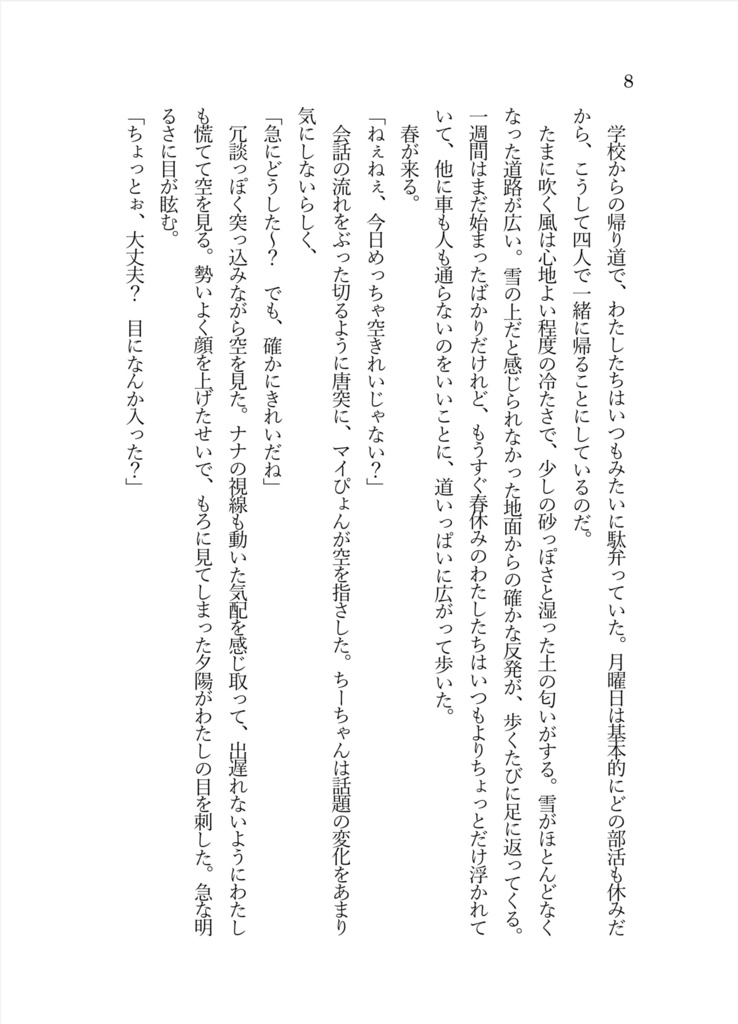 8
　学校からの帰り道で、わたしたちはいつもみたいに駄弁っていた。月曜日は基本的にどの部活も休みだ
から、こうして四人で一緒に帰ることにしているのだ。
　たまに吹く風は心地よい程度の冷たさで、少しの砂っぽさと湿った土の匂いがする。雪がほとんどなく
なった道路が広い。雪の上だと感じられなかった地面からの確かな反発が、歩くたびに足に返ってくる。
一週間はまだ始まったばかりだけれど、もうすぐ春休みのわたしたちはいつもよりちょっとだけ浮かれて
いて、他に車も人も通らないのをいいことに、道いっぱいに広がって歩いた。
　春が来る。
「ねぇねぇ、今日めっちゃ空きれいじゃない？」
　会話の流れをぶった切るように唐突に、マイぴょんが空を指さした。ちーちゃんは話題の変化をあまり
気にしないらしく、
「急にどうした〜？　でも、確かにきれいだね」
　冗談っぽく突っ込みながら空を見た。ナナの視線も動いた気配を感じ取って、出遅れないようにわたし
も慌てて空を見る。勢いよく顔を上げたせいで、もろに見てしまった夕陽がわたしの目を刺した。急な明
るさに目が眩む。
「ちょっとぉ、大丈夫？　目になんか入った？」